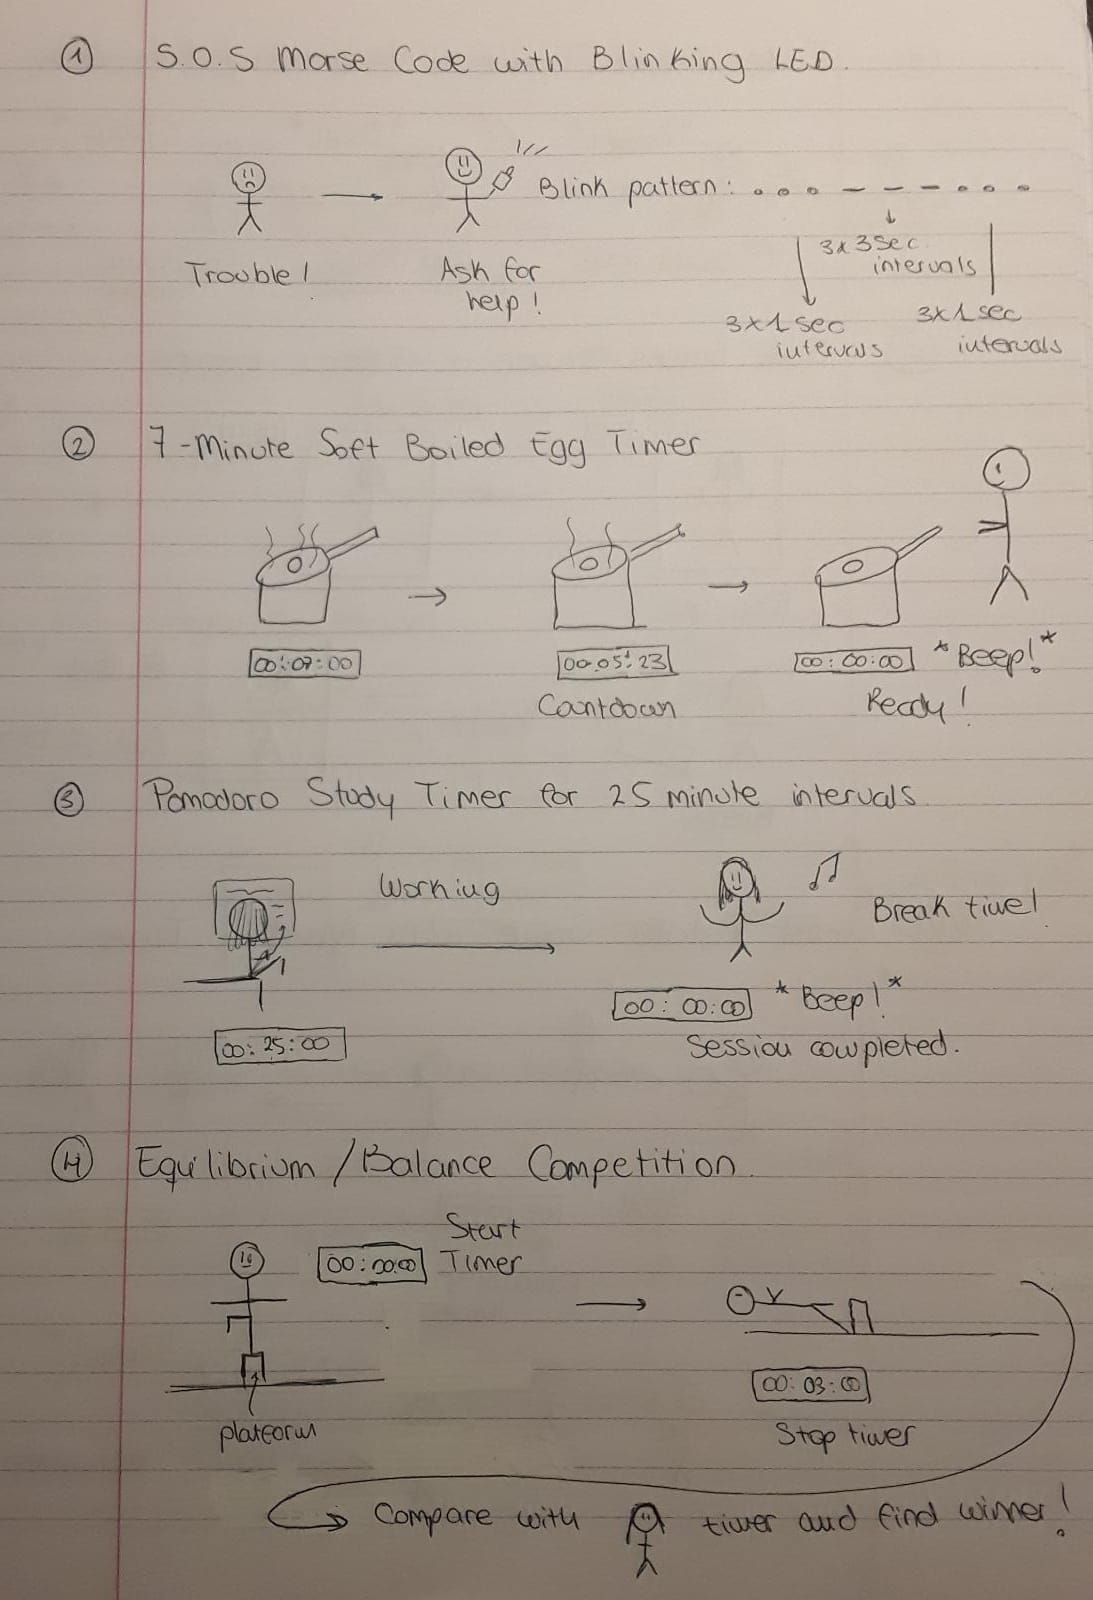 1 S.O.S Morse Code with Blinking LED.
Blink pattern: ... --- ...
Trouble!
Ask for
help!
3x3 sec
intervals
3x1 sec
intervals
3x1 sec
intervals
2 7-Minute Soft Boiled Egg Timer
00:07:00
00:05:23
00:00:00
*Beep!*
Countdown
Ready!
3 Pomodoro Study Timer for 25 minute intervals.
Working
Break time!
00:25:00
00:00:00 *Beep!*
Session completed.
4 Equilibrium/Balance Competition.
Start
00:00:00 Timer
platform
00:03:00
Stop timer
Compare with timer and find winner!